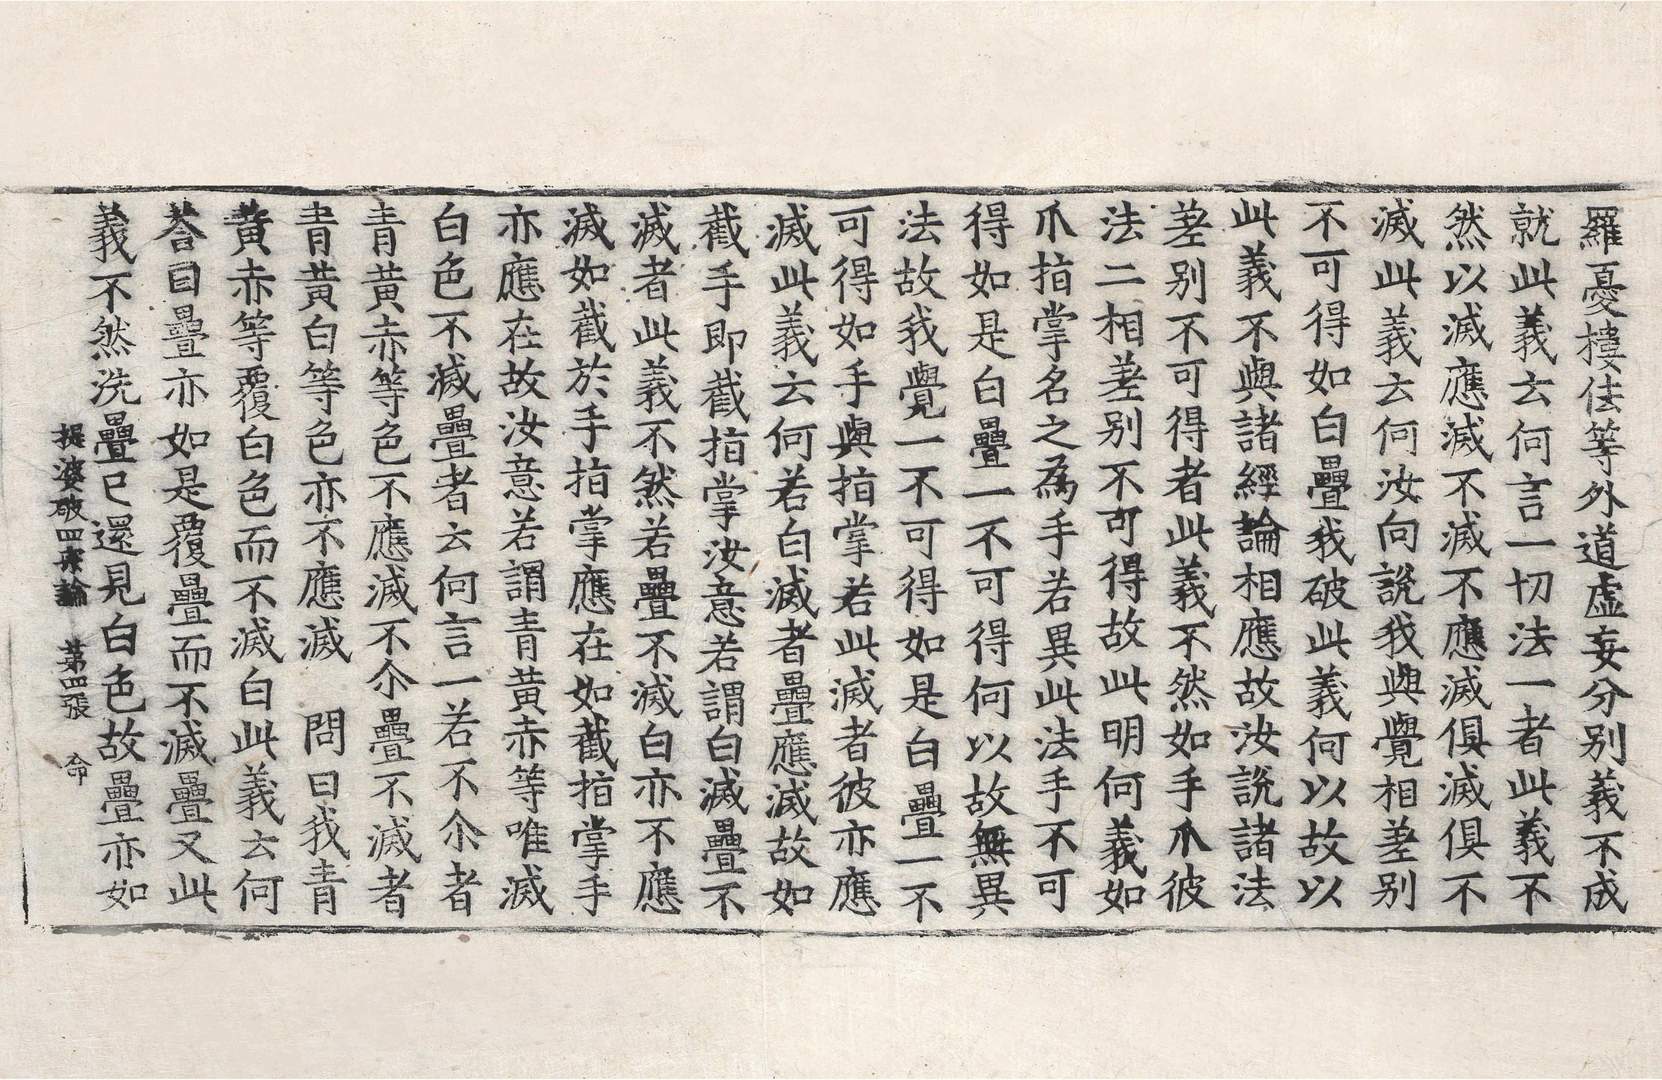 羅憂樓佉等外道虛妄分別義不成
就此義云何言一切法一者此義不
然以滅應滅不滅不應滅俱滅俱不
滅此義云何汝向說我與覺相差別
不可得如白疊我破此義何以故以
此義不與諸經論相應故汝說諸法
差別不可得者此義不然如手爪彼
法二相差別不可得故此明何義如
爪指掌名之為手若異此法手不可
得如是白疊一不可得何以故無異
法故我覺一不可得如是白疊一不
可得如手與指掌若此滅者彼亦應
滅此義云何若白滅者疊應滅故如
截手即截指掌汝意若謂白滅疊不
滅者此義不然若疊不滅白亦不應
滅如截於手指掌應在如截指掌手
亦應在故汝意若謂青黃赤等唯滅
白色不滅疊者云何言一若不尒者
青黃赤等色不應滅不尒疊不滅者
青黃白等色亦不應滅　問曰我青
黃赤等覆白色而不滅白此義云何
荅曰疊亦如是覆疊而不滅疊又此
義不然洗疊已還見白色故疊亦如
提婆破四宗論　第四張　命